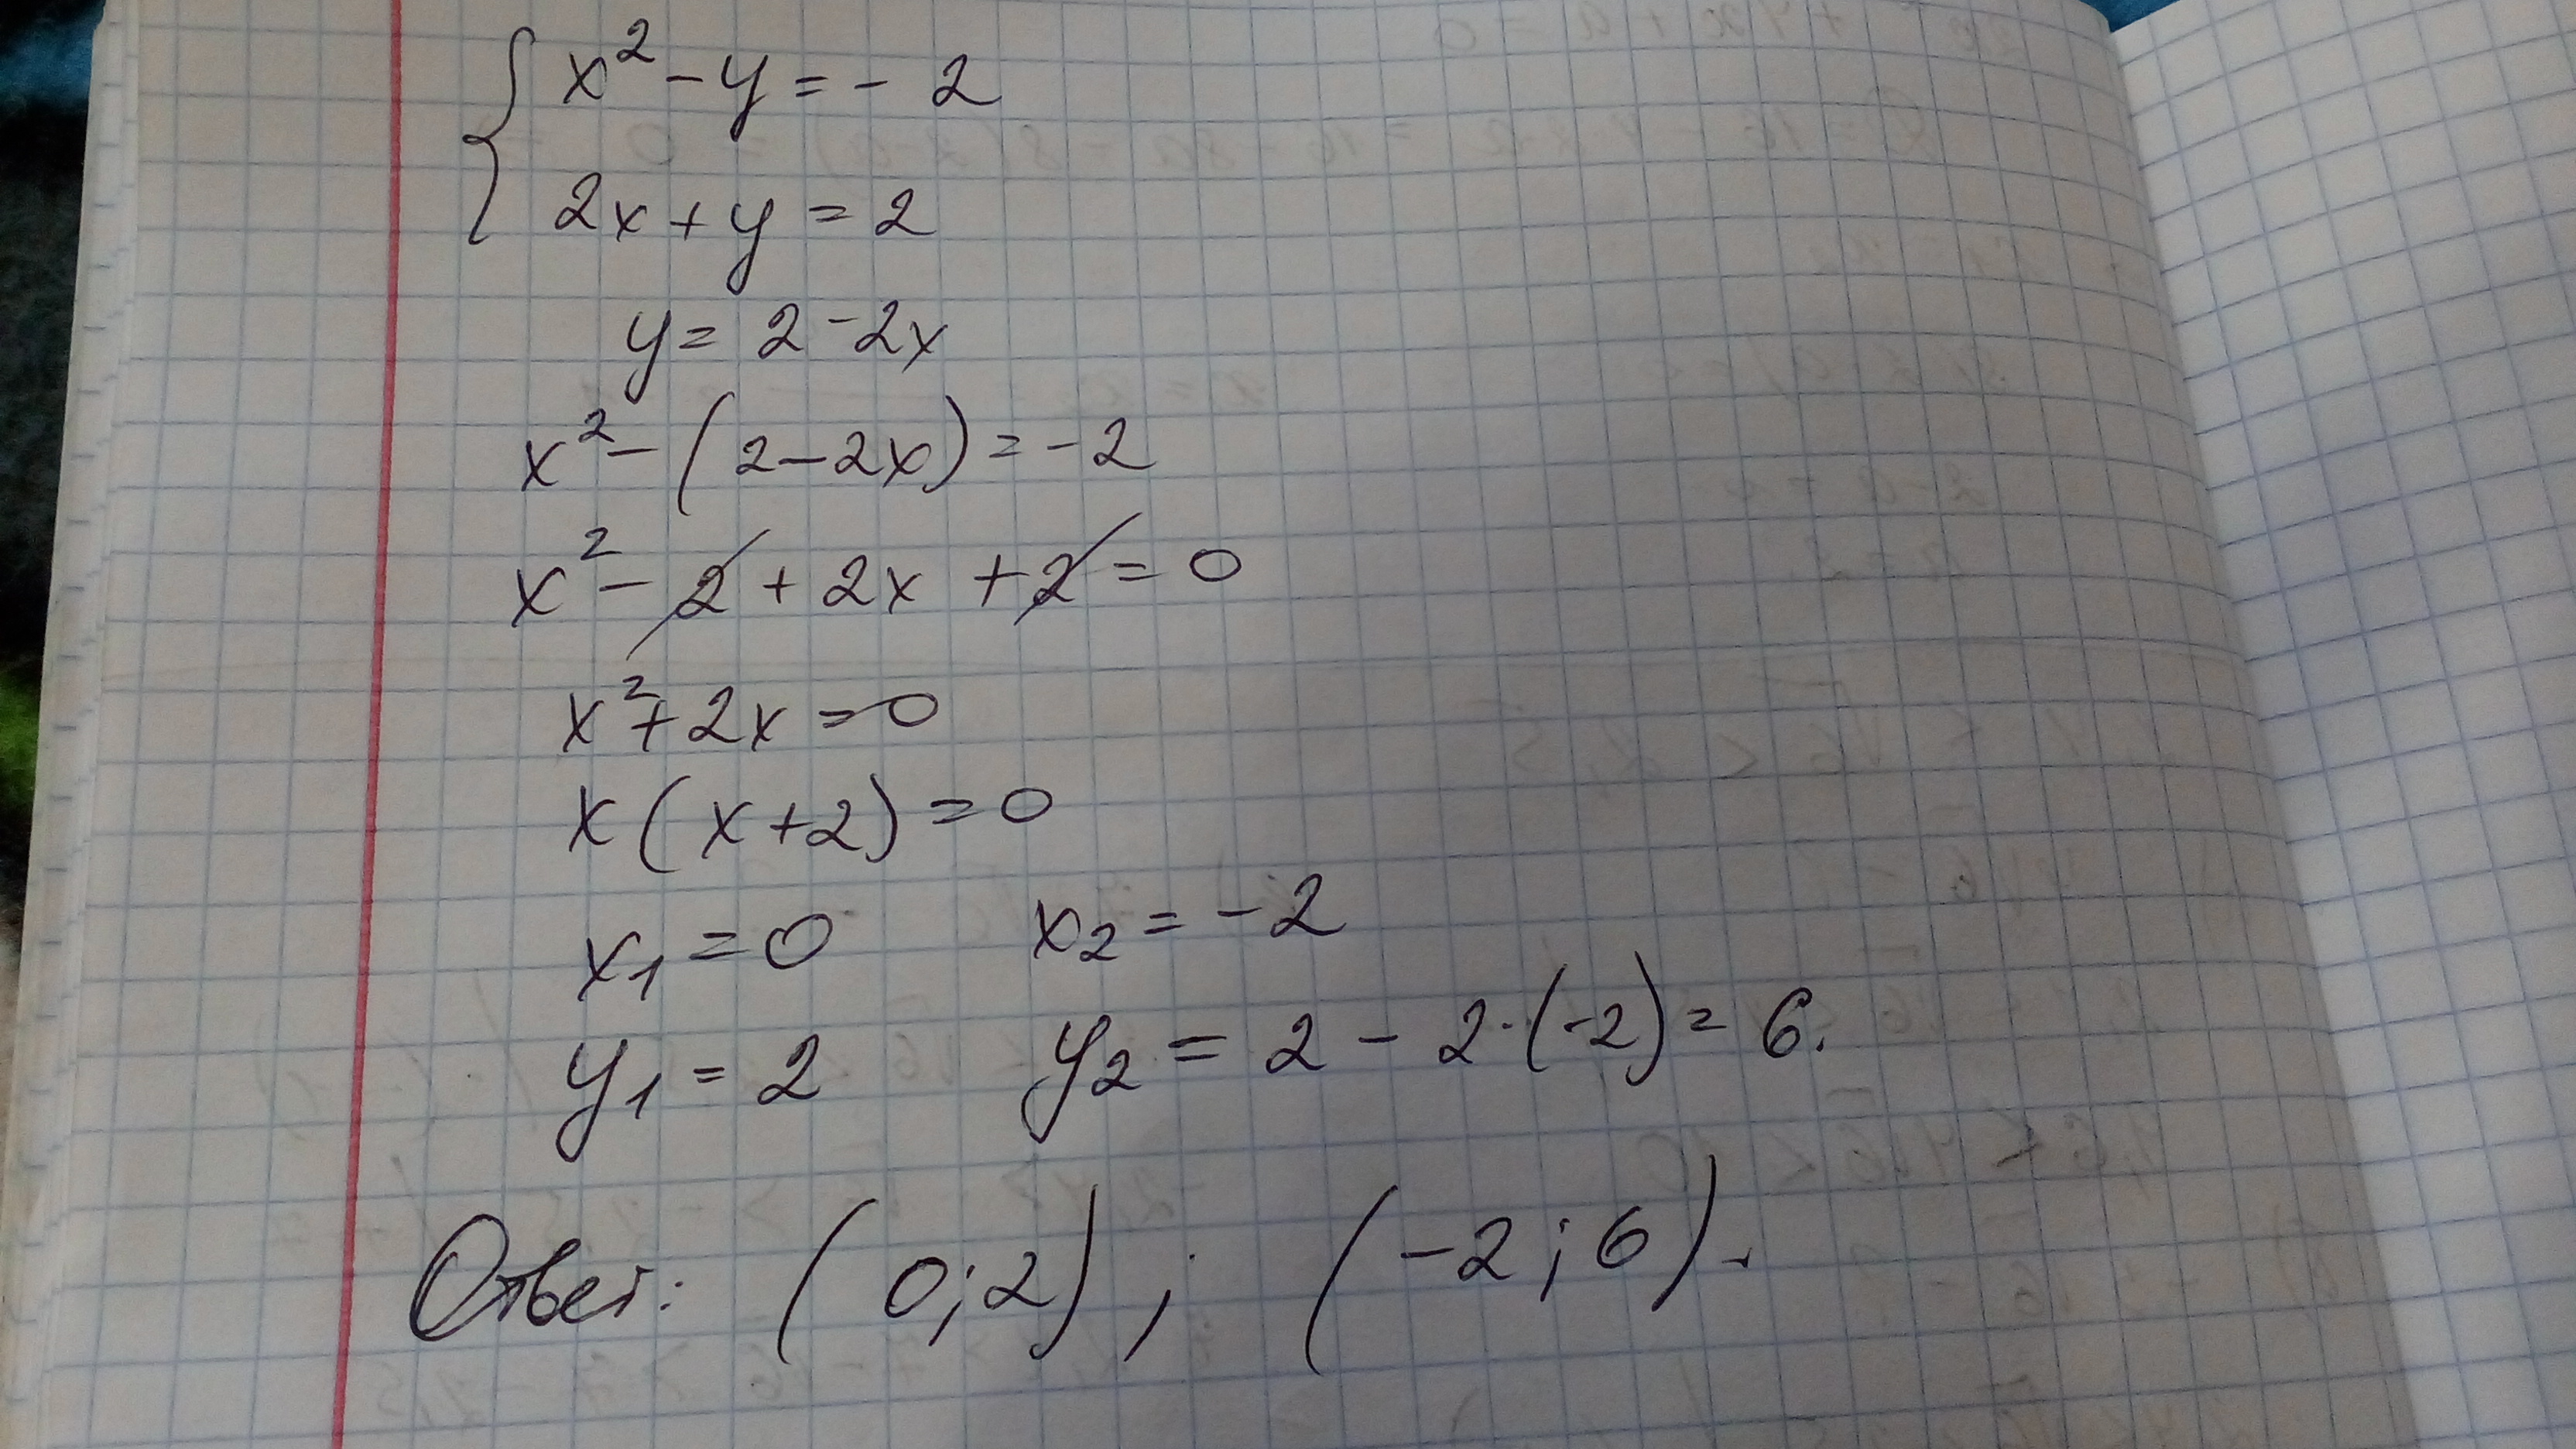 { x² - y = - 2
2x + y = 2
y = 2 - 2x
x² - (2 - 2x) = -2
x² - 2 + 2x + 2 = 0
x² + 2x = 0
x(x + 2) = 0
x₁ = 0 x₂ = -2
y₁ = 2 y₂ = 2 - 2·(-2) = 6.
Ответ: (0; 2) ; (-2; 6).